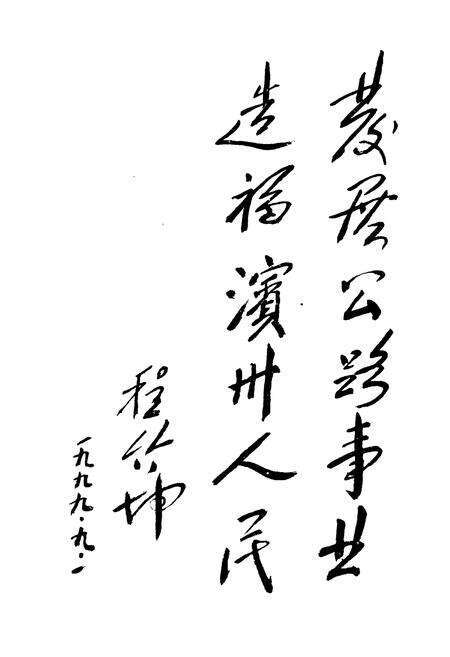 發展公路事业
造福濱州人民
程坤
一九九九·九·一